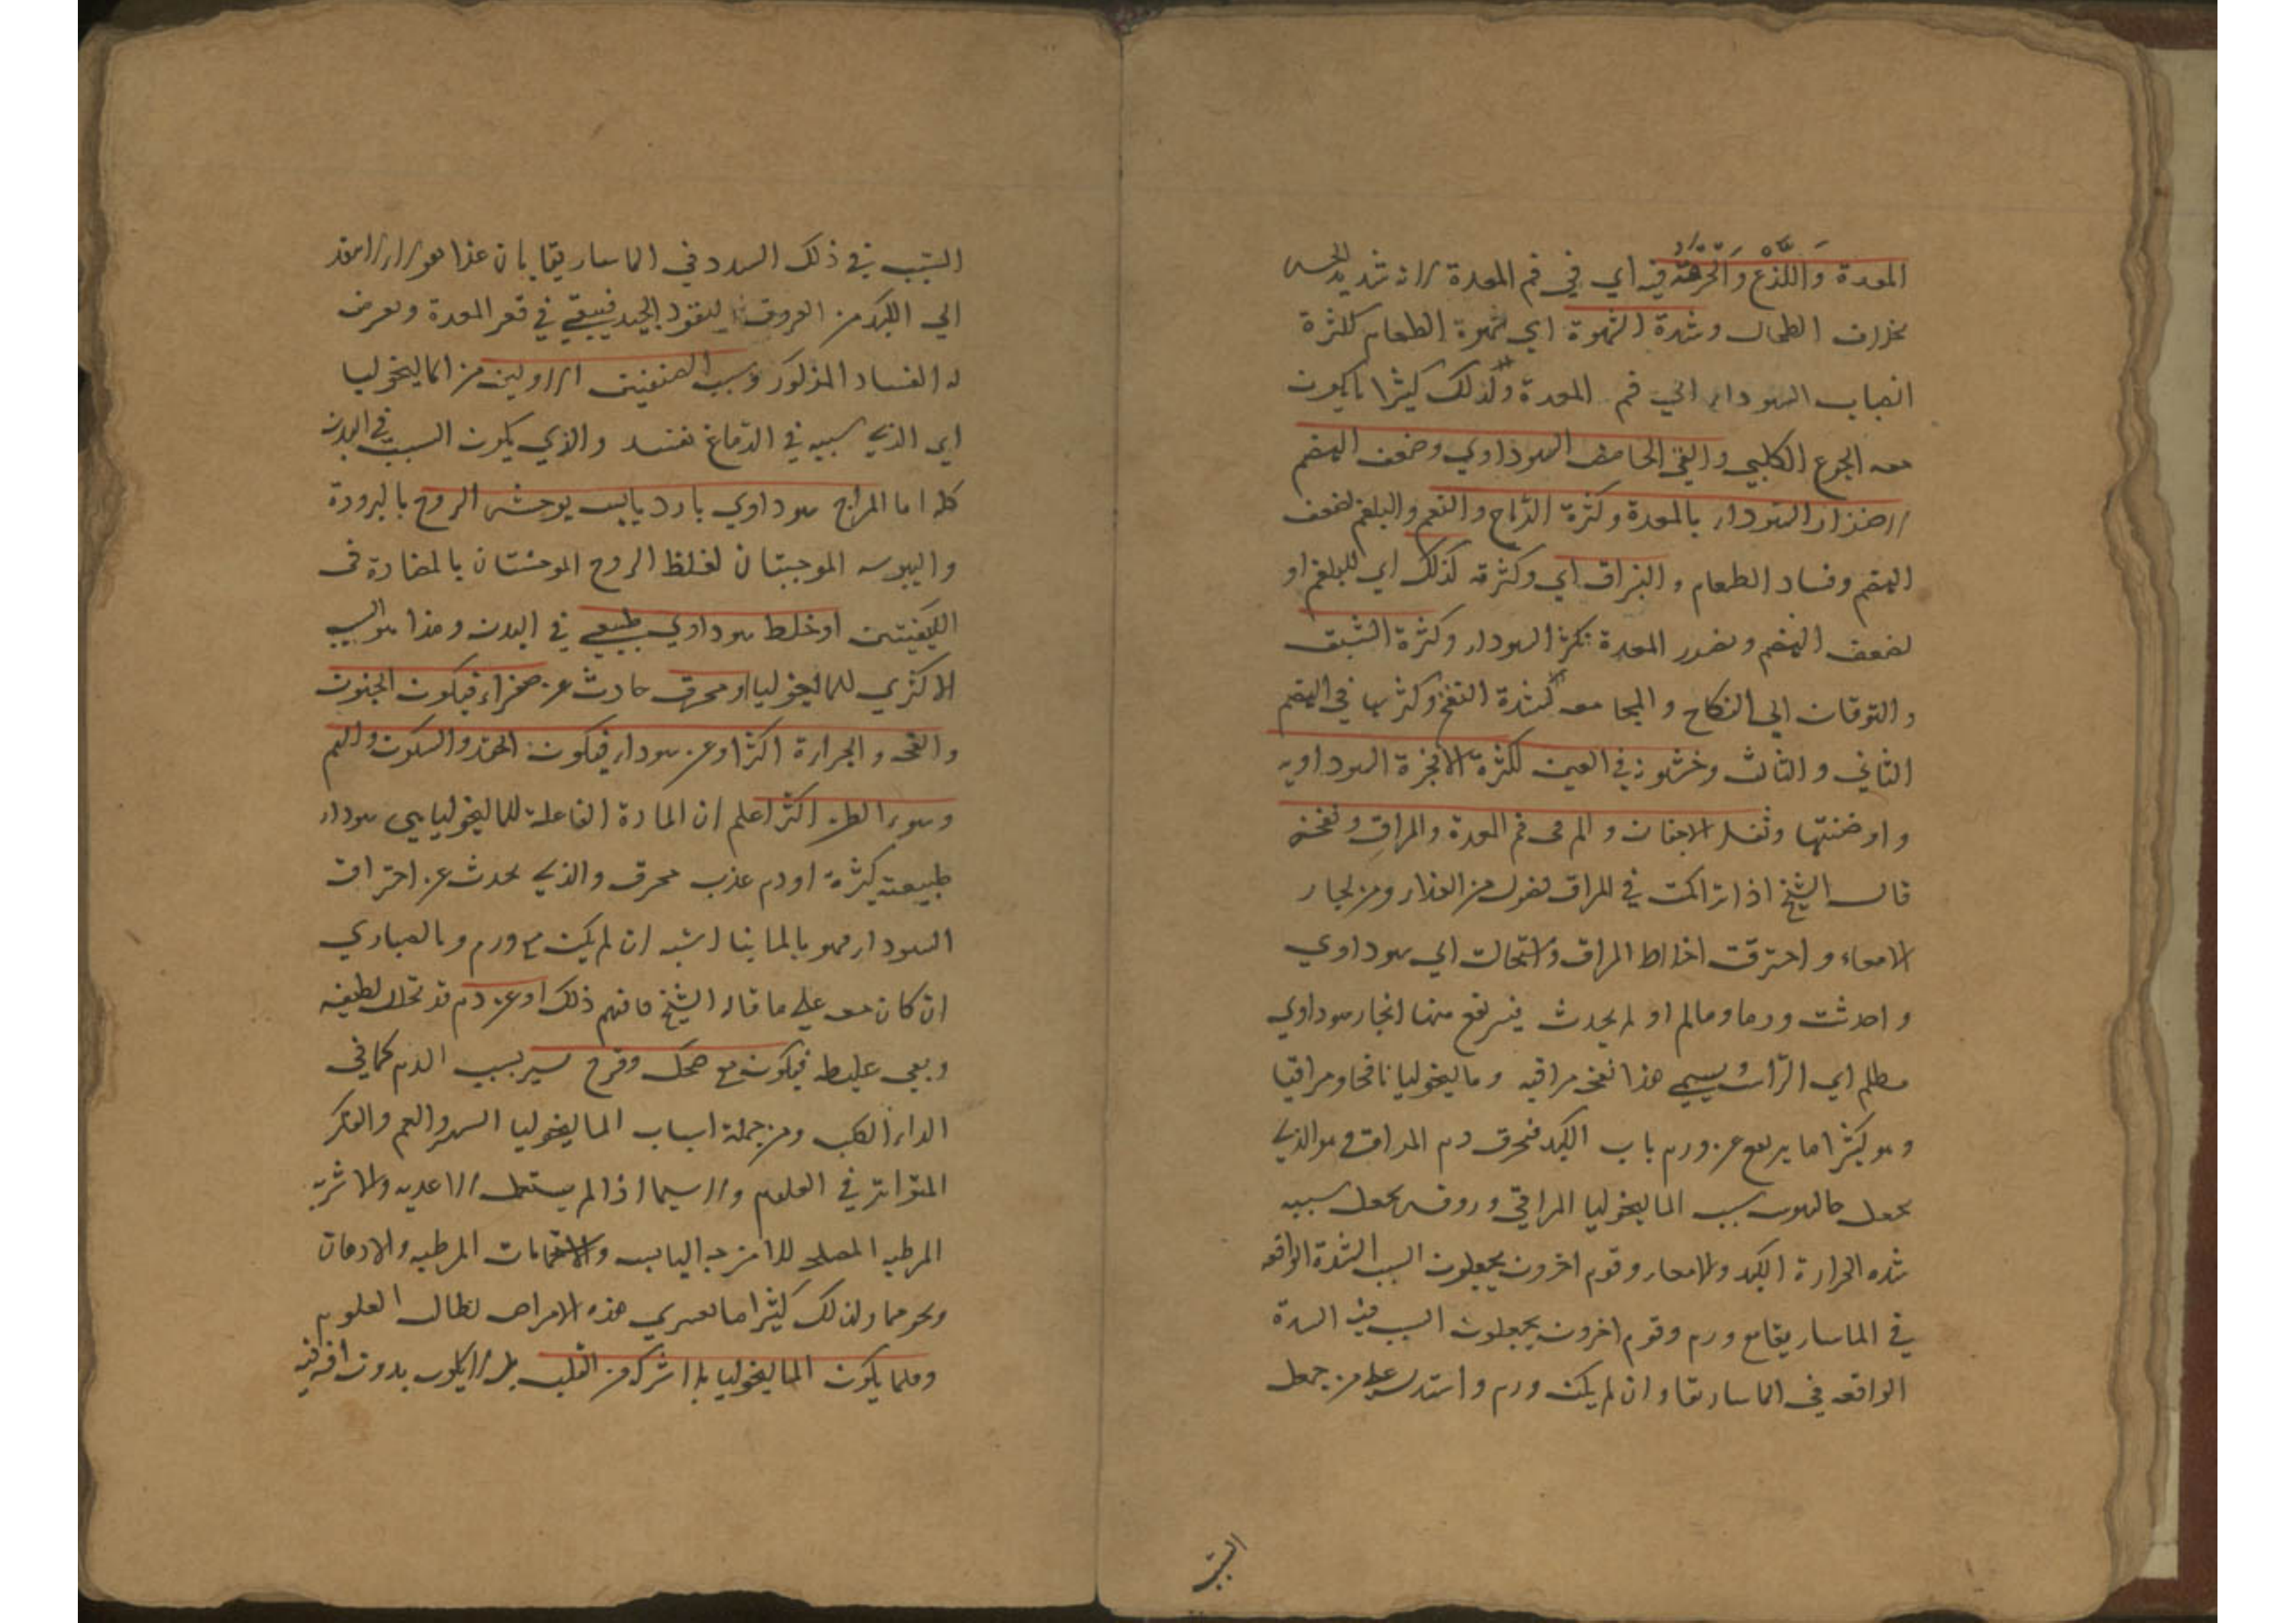 المعدة واللذع والحرقة فيه اي في فم المعدة لانه شديد الحس
بخلاف الطحال وشدة الشهوة اي شهوة الطعام لكثرة
انصباب السوداء الي فم المعدة ولذلك كثيرا ما يكون
معه الجوع الكلبي والقي الحامض السوداوي وضعف الهضم
لاضرار السوداء بالمعدة وكثرة الرياح والنغم والبلغم لضعف
الهضم وفساد الطعام والبزاق اي وكثرته كذلك اي للبلغم او
لضعف الهضم وتضرر المعدة بكثرة السوداء وكثرة الشبق
والتوقان الي النكاح والمجامعه لشدة النفخ وكثرتها في الهضم
الثاني والثالث وخشونة في العين لكثرة الابخرة السوداويه
وارضيتها وثقل الاجفان والم في فم المعدة والمراق ونفخه
قال الشيخ اذا تراكمت في المراق فضول من الغذاء ومن بخار
الامعاء واحترقت اخلاط المراق واستحالت الي سوداوي
واحدثت ورما ومالم او لم يحدث فيرتفع منها بخار سوداوي
مظلم اي الراس ويسمي هذا نفخه مراقيه وماليخوليا نافخا ومراقيا
وهو كثيرا ما يرتفع عن ورم باب الكبد فيحرق دم المراق وهو الذي
يجعل جالينوس سبب الماليخوليا المراقي وروفس يجعل سببه
شده الحرارة الكبد والامعاء وقوم اخرون يجعلون السبب الشدة الواقعه
في الماساريقا مع ورم وقوم اخرون يجعلون السبب فيه السدة
الواقعه في الماساريقا وان لم يكن ورم واستدل عليه من جعل
السبب
السبب في ذلك السدد في الماساريقا بان غذا هولاء لا ينفذ
الي الكبد من العروق لينفود الجيد فيبقي في قعر المعدة ويعرض
له الفساد المذكور وسبب الصنفين الاولين من الماليخوليا
اي الذي سببه في الدماغ نفسه والذي يكون السبب في البدن
كله اما المزاج سوداوي بارد يابس يوحش الروح بالبرودة
واليبوسه الموجبتان لغلظ الروح الموحشتان بالمضادة في
الكيفيتين او خلط سوداوي طبيعي في البدن وهذا هو السبب
الاكثري للماليخوليا او محرق حادث عن صفراء فيكون الجنون
والقحه والجرارة اكثر او عن سوداء فيكون الحقد والسكوت والغم
وسوء الظن اكثر اعلم ان المادة الفاعلة للماليخوليا هي سوداء
طبيعته كثرة او دم عذب محرق والذي يحدث عن احتراق
السوداء فهو بالمانيا اشبه ان لم يكن مع ورم وبالصباري
ان كان معه علي ما قال الشيخ فافهم ذلك او عن دم قد تحلل لطيفه
وبقي غليظه فيكون مع ضحك وفرح يسير بسبب الدم كما في
الداء الكلب ومن جملة اسباب الماليخوليا السهر والغم والفكر
المتواتر في العلوم ولا سيما اذا لم يستعمل الاغديه والاشربه
المرطبه المصلحه للامزجه اليابسه والاستحمامات المرطبه والادهان
ونحوهما ولذلك كثيرا ما تعتري هذه الامراض لطالب العلوم
وقلما يكون الماليخوليا بلا شركه من القلب بل لا يكون بدون افه فيه